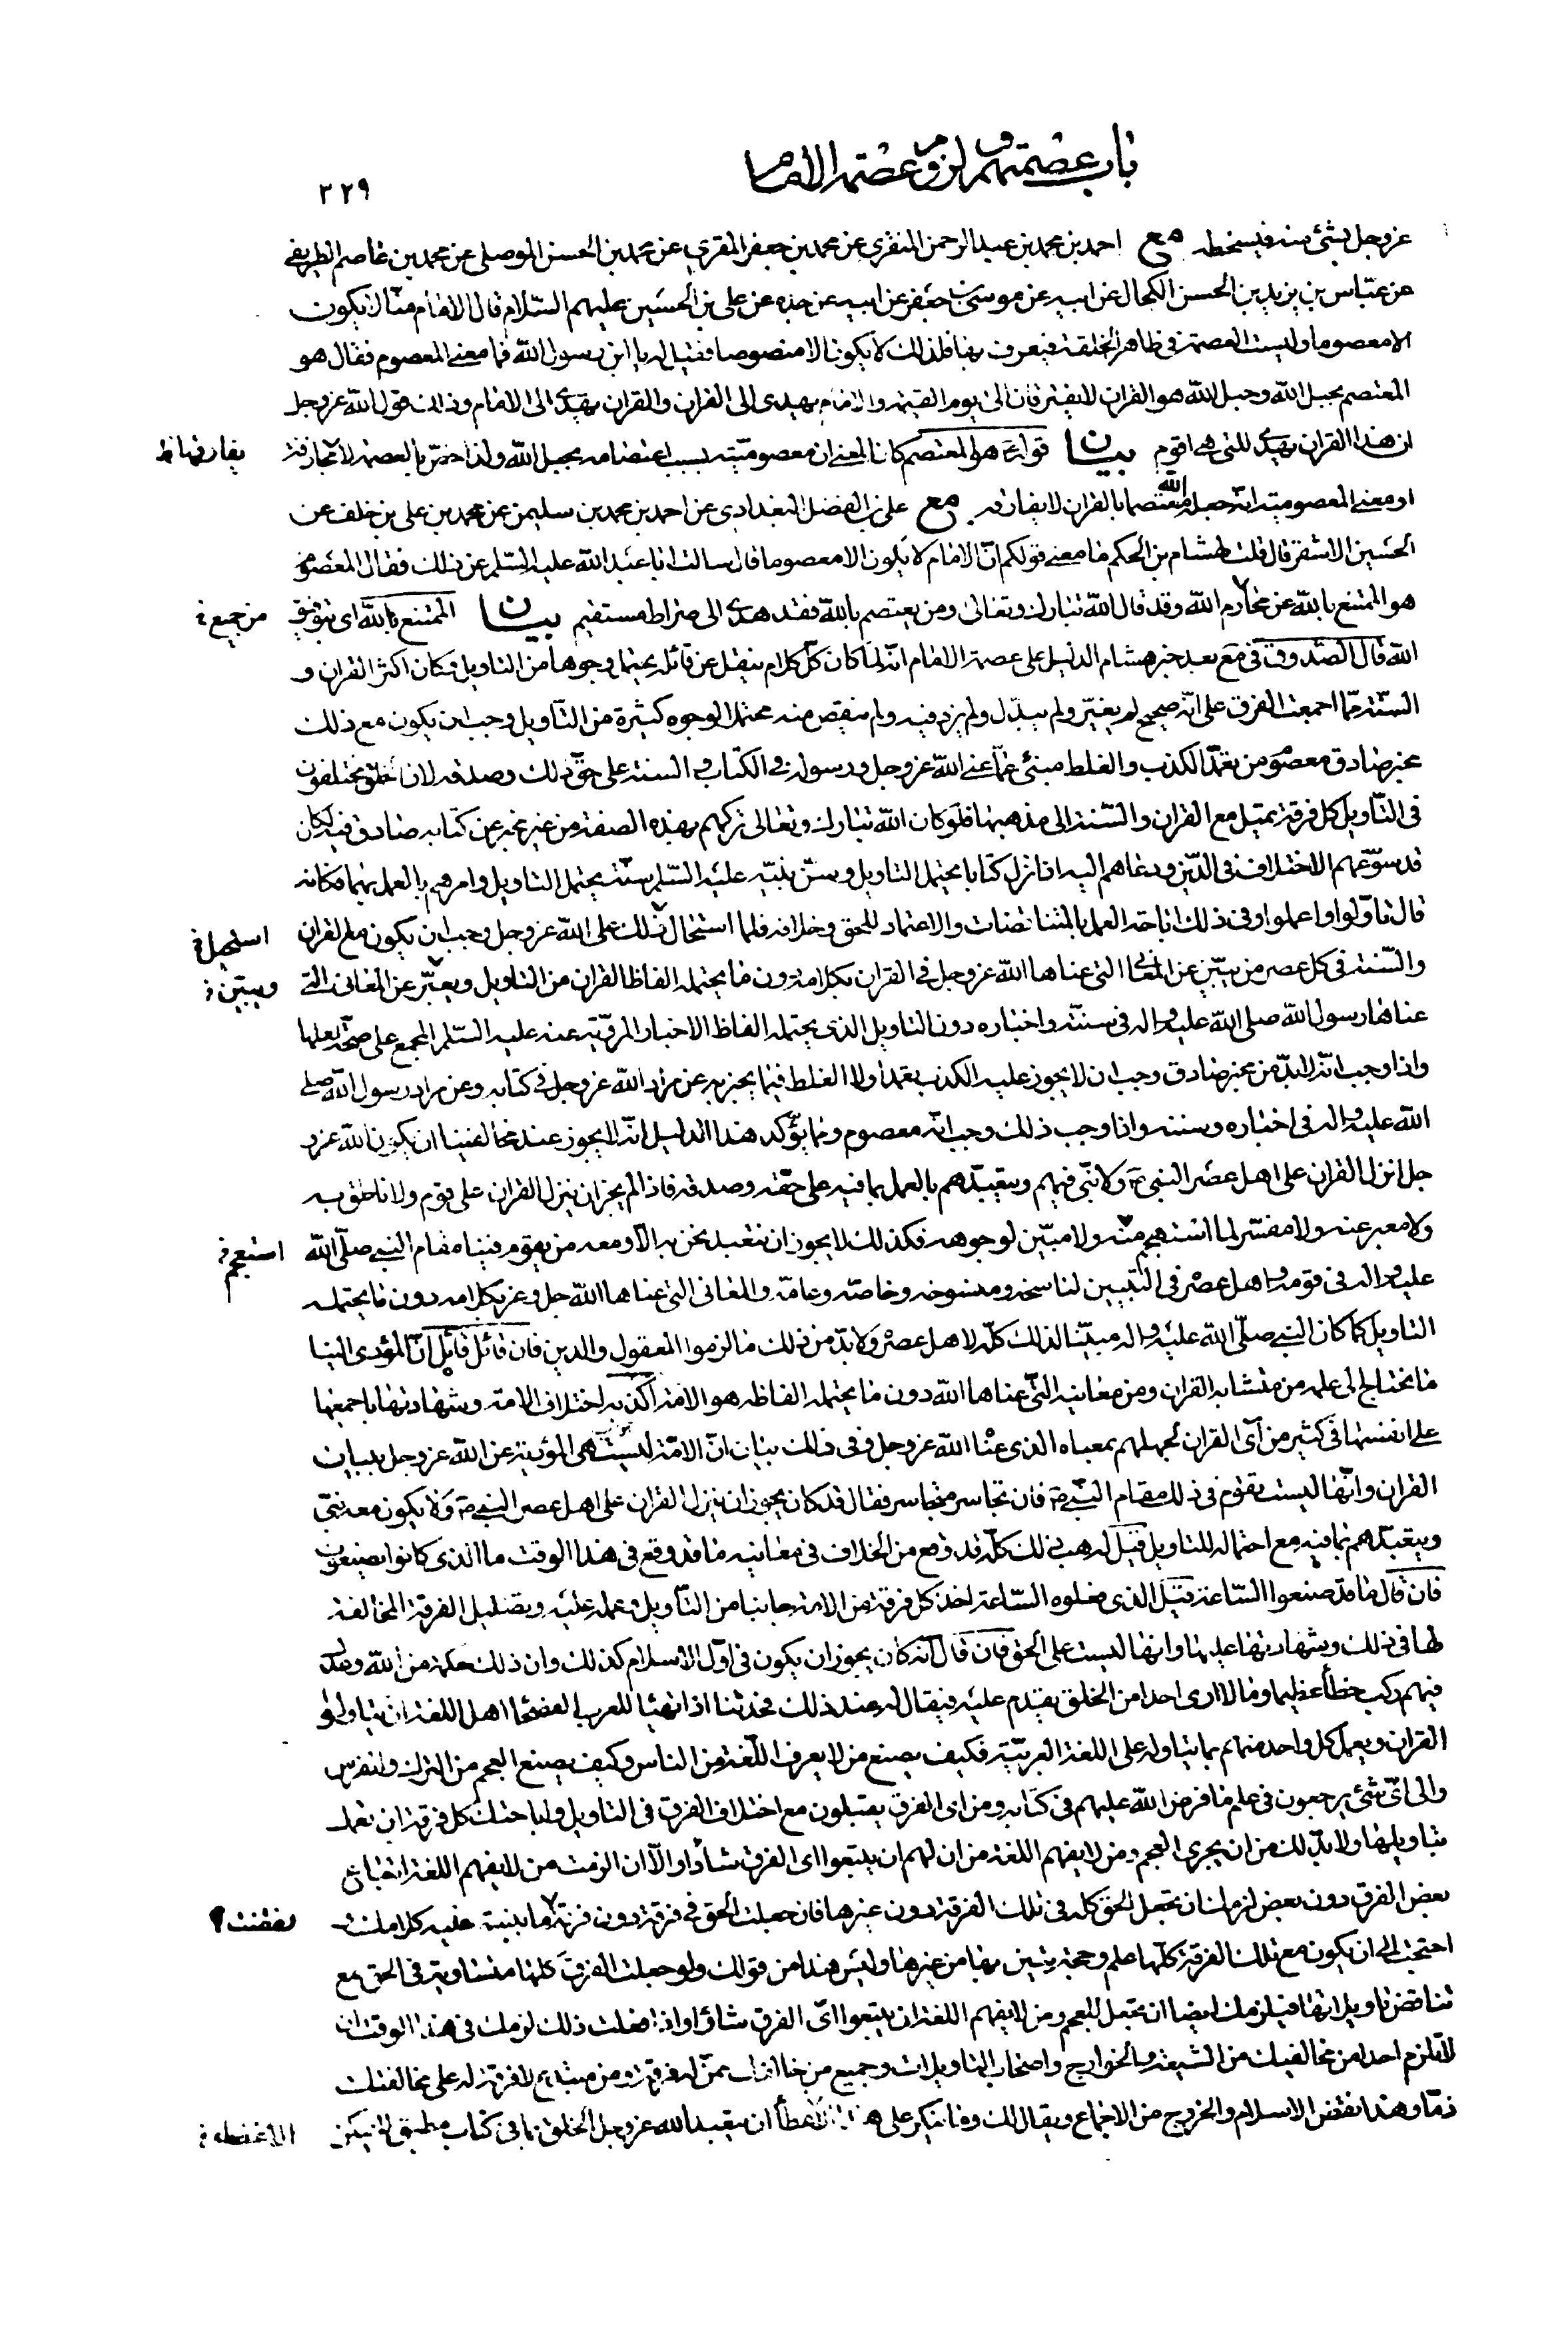 باب عصمتهم ولزوم عصمة الامام
٣٢٩
عزوجل بشئ منه فيسخطه مع احمد بن محمد بن عبد الرحمن المنقرى عن محمد بن جعفر المقرى عن محمد بن الحسن الموصلى عن محمد بن عاصم الطريفى
عن عباس بن يزيد بن الحسن الكحال عن ابيه عن موسى بن جعفر عن ابيه عن جده عن على بن الحسين عليهم السلام قال الامام منا لا يكون
الا معصوما وليست العصمة فى ظاهر الخلقة فيعرف بها فلذلك لا يكون الا منصوصا فقيل له يا ابن رسول الله فما معنى المعصوم فقال هو
المعتصم بحبل الله وحبل الله هو القران لا يفترقان الى يوم القيمة والامام يهدى الى القران والقران يهدى الى الامام وذلك قول الله عزوجل
ان هذا القران يهدى للتى هى اقوم بيان قوله ع هو المعتصم كان المعنى ان معصوميته بسبب اعتصامه بحبل الله ولذا خص بالعصمة لا مجازفة
او معنى المعصومية انه جعله الله معتصما بالقران لا يفارقه مع على بن الفضل البغدادى عن احمد بن محمد بن سليمن عن محمد بن على بن خلف عن
الحسين الاشقر قال قلت لهشام بن الحكم ما معنى قولكم ان الامام لا يكون الا معصوما قال سالت ابا عبد الله عليه السلم عن ذلك فقال المعصوم
هو الممتنع بالله عن محارم الله وقد قال الله تبارك وتعالى ومن يعتصم بالله فقد هدى الى صراط مستقيم بيان الممتنع بالله اى بتوفيق من جميع
الله قال الصدوق فى مع بعد خبر هشام الدليل على عصمة الامام انه لما كان كل كلام ينقل عن قائله يحتمل وجوها من التاويل وكان اكثر القران و
السنة مما اجمعت الفرق على انه صحيح لم يغير ولم يبدل ولم يزد فيه ولم ينقص منه محتملا لوجوه كثيرة من التاويل وجب ان يكون مع ذلك
مخبر صادق معصوم من تعمد الكذب والغلط مبنئ عما عنى الله عزوجل ورسوله فى الكتاب والسنة على حق ذلك وصدقه لان الخلق مختلفون
فى التاويل كل فرقة تميل مع القران والسنة الى مذهبها فلو كان الله تبارك وتعالى تركهم بهذه الصفة من غير مخبر عن كتابه صادق فيه لكان
قد سوغهم الاختلاف فى الدين ودعاهم اليه اذ انزل كتابا يحتمل التاويل وسن نبيه عليه السلم سنة يحتمل التاويل وامرهم بالعمل بهما فكانه
قال تاولوا واعملوا وفى ذلك اباحة العمل بالمتناقضات والاعتماد للحق وخلافه فلما استحال ذلك على الله عزوجل وجب ان يكون مع القران
والسنة فى كل عصر من يبين عن المعانى التى عناها الله عزوجل فى القران بكلامه دون ما يحتمله الفاظ القران من التاويل ويعبر عن المعانى التى ويبين
عناها رسول الله صلى الله عليه واله فى سننه واخباره دون التاويل الذى يحتمله الفاظ الاخبار المروية عنه عليه السلم المجمع على صحة نقلها
واذا وجب انه لا بد من مخبر صادق وجب ان لا يجوز عليه الكذب تعمدا ولا الغلط فيما يخبر به عن مراد الله عزوجل فى كتابه وعن مراد رسول الله صلى
الله عليه واله فى اخباره وسننه واذا وجب ذلك وجب انه معصوم ومما يؤكد هذا الدليل انه لا يجوز عند مخالفينا ان يكون الله عز و
جل انزل القران على اهل عصر النبى ص ولا نبى فيهم ويتعبدهم بالعمل بما فيه على حقه وصدقه فاذا لم يجز ان ينزل القران على قوم ولا ناطق به
ولا معبر عنه ولا مفسر لما استعجم منه ولا مبين لوجوهه فكذلك لا يجوز ان نتعبد نحن به الا ومعه من يقوم فينا مقام النبى صلى الله استعجم
عليه واله فى قومه واهل عصره فى التبيين لناسخه ومنسوخه وخاصه وعامه والمعانى التى عناها الله جل وعز بكلامه دون ما يحتمله
التاويل كما كان النبى صلى الله عليه واله مبينا لذلك كله لاهل عصره ولا بد من ذلك ما لزموا المعقول والدين فان قائل قائل ان المؤدى الينا
ما نحتاج الى علمه من متشابه القران ومن معانيه التى عناها الله دون ما يحتمله الفاظه هو الامة اكذبه اختلاف الامة وشهادتها باجمعها
على انفسها فى كثير من آى القران لجهلهم بمعناه الذى عناه الله عزوجل وفى ذلك بيان ان الامة ليست هى المؤدية عن الله عزوجل ببيان
القران وانها ليست تقوم فى ذلك مقام النبى ص فان تجاسر متجاسر فقال قد كان يجوز ان ينزل القران على اهل عصر النبى ص ولا يكون معه نبى
ويتعبدهم بما فيه مع احتماله للتاويل قيل له هب ذلك كله قد وقع من الخلاف فى معانيه ما قد وقع فى هذا الوقت ما الذى كانوا يصنعون
فان قال ما قد صنعوا الساعة قيل الذى فعلوه الساعة اخذ كل فرقة من الامة جانبا من التاويل وعمله عليه وتضليل الفرقة المخالفة
لها فى ذلك وشهادتها عليها وانها ليست على الحق فان قال انه كان يجوز ان يكون فى اول الاسلام كذلك وان ذلك حكمة من الله وعدل
فيهم ركب خطأ عظيما وما لا ارى احدا من الخلق يقدم عليه فيقال له عند ذلك فحدثنا اذا تهيا للعرب الفصحاء اهل اللغة ان يتاولوا
القران ويعمل كل واحد منهم بما يتاوله على اللغة العربية فكيف يصنع من لا يعرف اللغة من الناس وكيف يصنع العجم من الترك والفرس
والى اى شئ يرجعون فى علم ما فرض الله عليهم فى كتابه ومن اى الفرق يقبلون مع اختلاف الفرق فى التاويل واباحتك كل فرقة ان تعمل
بتاويلها ولا بد لك من ان يجرى العجم ومن لا يفهم اللغة من ان لهم ان يتبعوا اى الفرق شاؤا والا ان الزمت من لا يفهم اللغة اتباع
بعض الفرق دون بعض لزمك ان تجعل الحق كله فى تلك الفرقة دون غيرها فان جعلت الحق فى فرقة دون فرقة ما بينة عليه كلامك و
احتجت الى ان يكون مع تلك الفرقة كلها علم وحجة تبين بها من غيرها وليس هذا من قولك ولو جعلت الفرق كلها متساوية فى الحق مع
تناقض تاويلاتها فيلزمك ايضا ان تجعل للعجم ومن لا يفهم اللغة ان يتبعوا اى الفرق شاؤا واذا فعلت ذلك لزمك فى هذا الوقت ان
لا تلزم احدا من مخالفيك من الشيعة والخوارج واصحاب التاويلات وجميع من خالفك ممن له فرقة ومن مبتدع لا فرقة له على مخالفتك
ذما وهذا نقض الاسلام والخروج من الاجماع ويقال لك وما ينكر على هذا ان يتعبد الله عزوجل الخلق بما فى كتاب مطبق لا يمكن